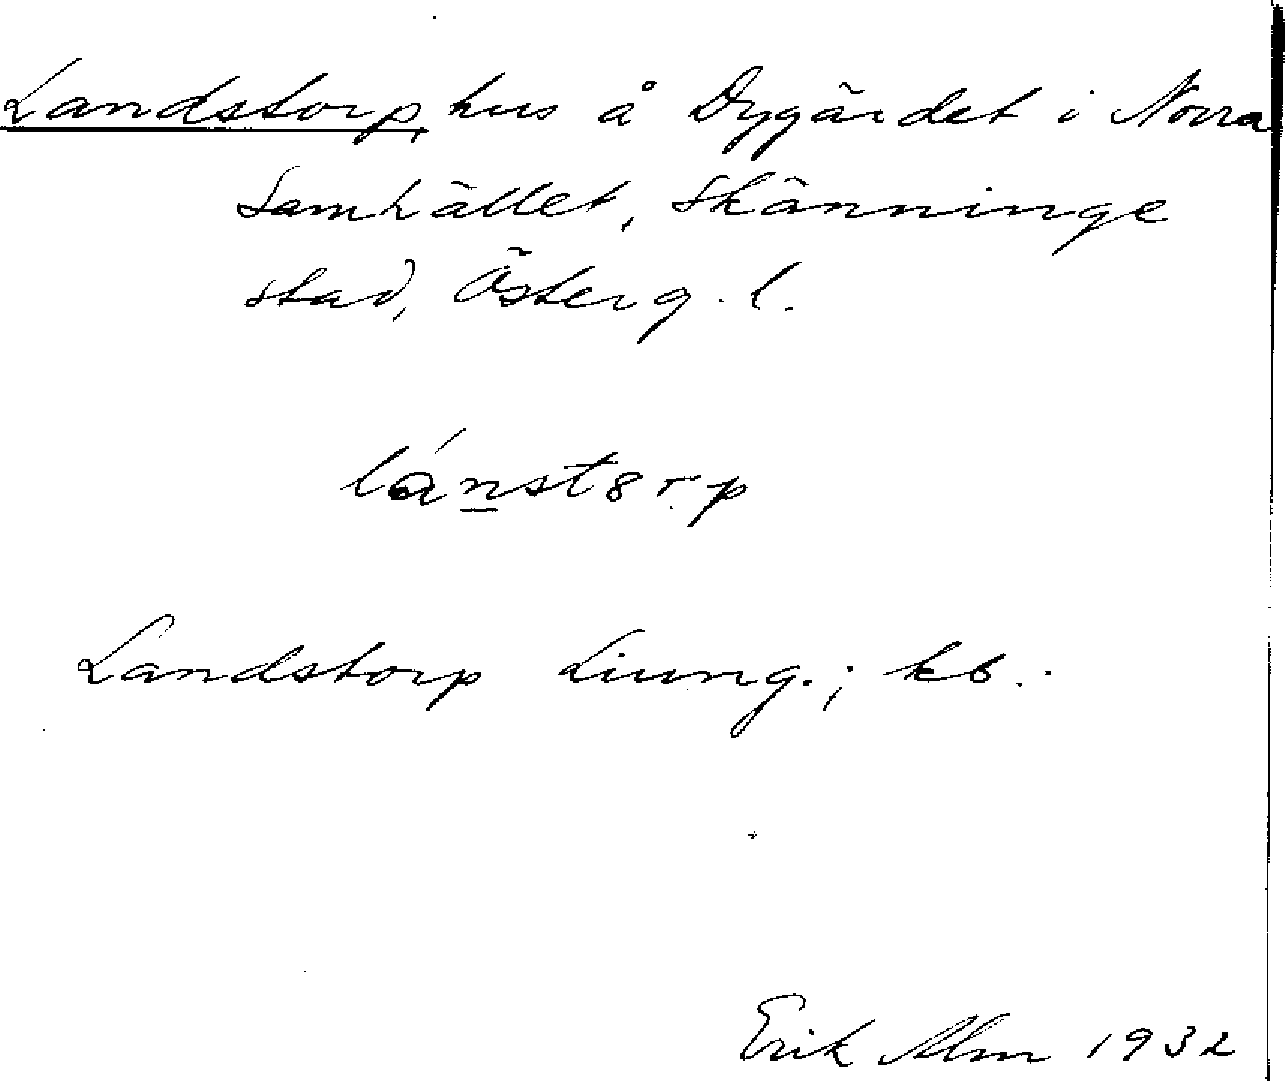 Landstorp, hus å Dygärdet i Norra
Samhället, Skänninge
stad, Österg. l.
lánst8rp
Landstorp Liung.; kb.
Erik Alm 1932